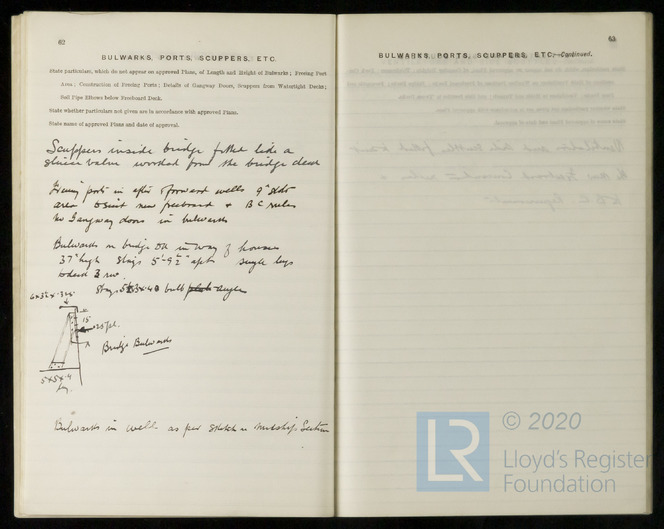 62
BULWARKS, PORTS, SCUPPERS, ETC.
State particulars, which do not appear on approved Plans, of Length and Height of Bulwarks; Freeing Port
Area; Construction of Freeing Ports; Details of Gangway Doors, Scuppers from Watertight Decks;
Soil Pipe Elbows below Freeboard Deck.
State whether particulars not given are in accordance with approved Plans.
State name of approved Plans and date of approval.
Scuppers inside bridge fitted side a
sluice valve worked from the bridge deck
Freeing ports in after & forward wells
area to suit new freeboard & B C rules
No Gangway doors in bulwarks
Bulwarks on bridge Dk in way of houses
37" high Stays 5'-9½" apt single legs
to deck 3 riv.
bulb angles
15"
Bridge Bulwarks
5 x 5 x .4
Bulwarks in well as per sketch in Midship Section
63
BULWARKS, PORTS, SCUPPERS, ETC.—Continued.
LR
© 2020
Lloyd's Register
Foundation